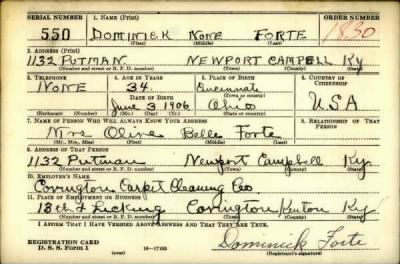 SERIAL NUMBER 1. NAME (Print) ORDER NUMBER
550 DOMINICK NONE FORTE 1830
(First) (Middle) (Last)
2. ADDRESS (Print)
1132 PUTMAN. NEWPORT CAMPBELL Ky
(Number and street or R. F. D. number) (Town) (County) (State)
3. TELEPHONE 4. AGE IN YEARS 5. PLACE OF BIRTH 6. COUNTRY OF CITIZENSHIP
NONE 34. Cincinnati
DATE OF BIRTH (Town or county)
June 3 1906 Ohio USA
(Exchange) (Number) (Mo.) (Day) (Yr.) (State or country)
7. NAME OF PERSON WHO WILL ALWAYS KNOW YOUR ADDRESS 8. RELATIONSHIP OF THAT PERSON
Mrs Olive Belle Forte
(Mr., Mrs., Miss) (First) (Middle) (Last)
9. ADDRESS OF THAT PERSON
1132 Putman Newport Campbell Ky.
(Number and street or R. F. D. number) (Town) (County) (State)
10. EMPLOYER'S NAME
Covington Carpit Cleaning Co
11. PLACE OF EMPLOYMENT OR BUSINESS
18th & Licking Covington Kenton Ky.
(Number and street or R. F. D. number) (Town) (County) (State)
I AFFIRM THAT I HAVE VERIFIED ABOVE ANSWERS AND THAT THEY ARE TRUE.
REGISTRATION CARD
D. S. S. Form 1 (over) 16—17105
Dominick Forte
(Registrant's signature)